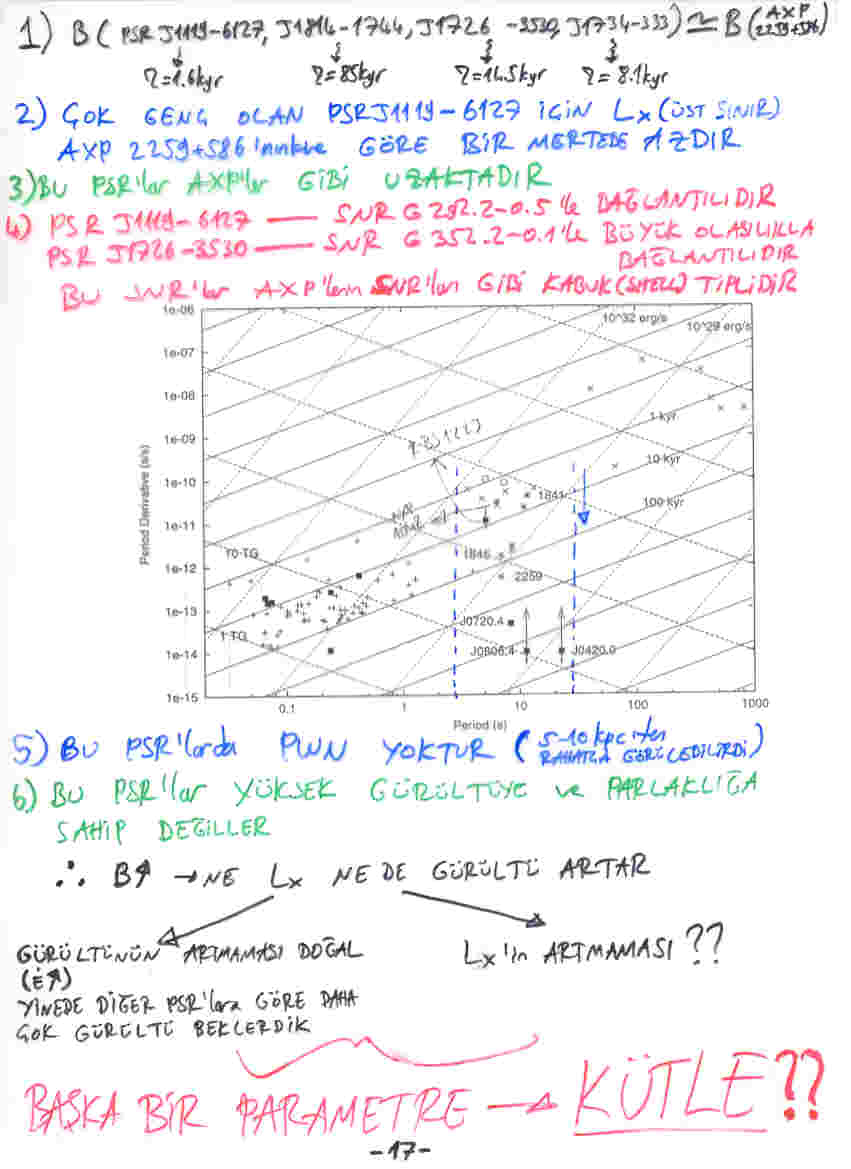 1) B( PSR J1119-6127, J1814-1744, J1726-3530, J1734-333) ≃ B (AXP 2259+586)
τ=1.6kyr τ=85kyr τ=14.5kyr τ=8.1kyr
2) ÇOK GENÇ OLAN PSRJ1119-6127 İÇİN Lx (ÜST SINIR)
AXP 2259+586 'nınkine GÖRE BİR MERTEBE AZDIR
3) BU PSR'lar AXP'ler GİBİ UZAKTADIR
4) PSR J1119-6127 — SNR G 292.2-0.5 'le BAĞLANTILIDIR
PSR J1726-3530 — SNR G 352.2-0.1 'le BÜYÜK OLASILIKLA
BAĞLANTILIDIR
BU SNR'lar AXP'lerin SNR'ları GİBİ KABUK (SHELL) TİPLİDİR
1e-06
10^32 erg/s
10^29 erg/s
1e-07
1e-08
1 kyr
1e-09
10 kyr
1e-10
1841
100 kyr
1e-11
10 TG
1846
1e-12
2259
1e-13
J0720.4
1 TG
1e-14
J0806.4
J0420.0
1e-15
Period Derivative (s/s)
0.1 1 10 100 1000
Period (s)
5) BU PSR'larda PWN YOKTUR ( 5-10 kpc'ten
RAHATÇA GÖRÜLEBİLİRDİ)
6) BU PSR'lar YÜKSEK GÜRÜLTÜYE ve PARLAKLIĞA
SAHİP DEĞİLLER
∴ B↑ → NE Lx NE DE GÜRÜLTÜ ARTAR
GÜRÜLTÜNÜN ARTMAMASI DOĞAL
(Ė↑)
YİNEDE DİĞER PSR'lara GÖRE DAHA
ÇOK GÜRÜLTÜ BEKLERDİK
Lx'in ARTMAMASI ??
BAŞKA BİR PARAMETRE → KÜTLE ??
-17-